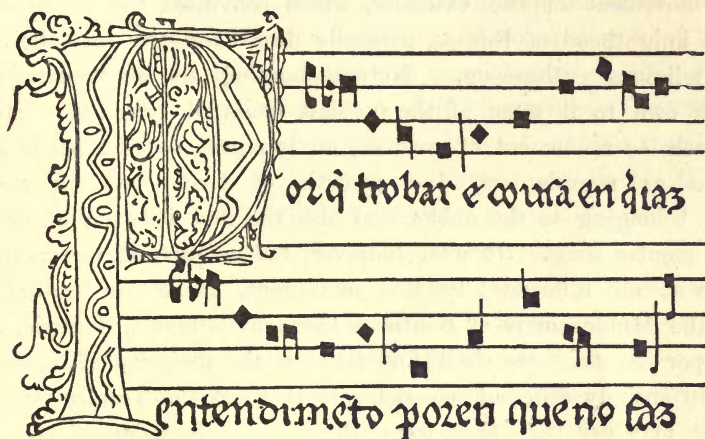 Porq̃ trobar e cousa en q̃ iaz
entendimẽto poren que no faz